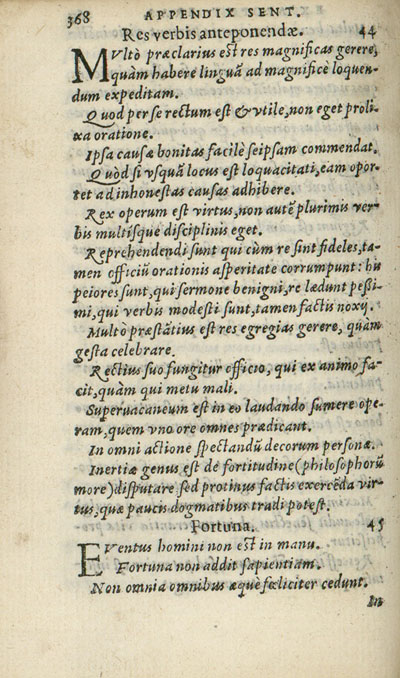 368 APPENDIX SENT.
Res verbis anteponendæ. 44
MVltò præclarius est res magnificas gerere,
quàm habere linguã ad magnificè loquen-
dum expeditam.
Quod per se rectum est & vtile, non eget proli-
xa oratione.
Ipsa causæ bonitas facilè seipsam commendat.
Quòd si vsquã locus est loquacitati, eam opor-
tet ad inhonestas causas adhibere.
Rex operum est virtus, non autẽ plurimis ver-
bis multisque disciplinis eget.
Reprehendendi sunt qui cùm re sint fideles, ta-
men officiũ orationis asperitate corrumpunt: his
peiores sunt, qui sermone benigni, re lædunt pessi-
mi, qui verbis modesti sunt, tamen factis noxij.
Multò præstãtius est res egregias gerere, quàm
gesta celebrare.
Rectius suo fungitur officio, qui ex animo fa-
cit, quàm qui metu mali.
Superuacaneum est in eo laudando sumere ope-
ram, quem vno ore omnes prædicant.
In omni actione spectandũ decorum personæ.
Inertiæ genus est de fortitudine (philosophorũ
more) disputare sed protinus factis exercẽda vir-
tus, quæ paucis dogmatibus tradi potest.
Fortuna. 45
EVentus homini non est in manu.
Fortuna non addit sapientiam.
Non omnia omnibus æquè fœliciter cedunt.
In